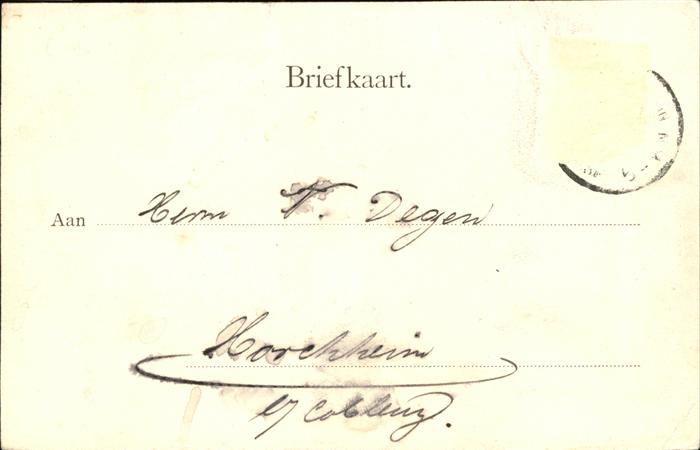 Briefkaart.
Aan Herrn T. Degen
Horchheim
b/ Coblenz.